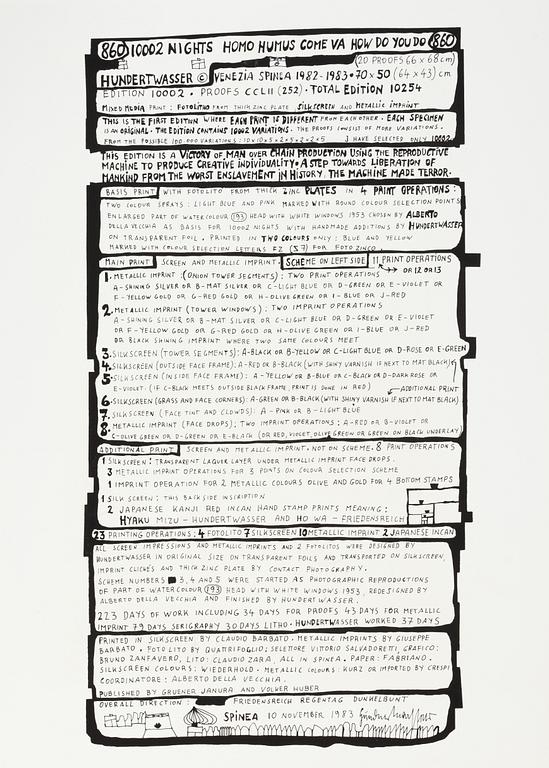 860 10002 NIGHTS HOMO HUMUS COME VA HOW DO YOU DO 860
(20 PROOFS 66 x 68 cm)
HUNDERTWASSER © VENEZIA SPINEA 1982-1983 • 70 x 50 (64 x 43) cm
EDITION 10002 • PROOFS CCLII (252) • TOTAL EDITION 10254
MIXED MEDIA PRINT: FOTOLITHO FROM THICK ZINC PLATE SILKSCREEN AND METALLIC IMPRINT
THIS IS THE FIRST EDITION WHERE EACH PRINT IS DIFFERENT FROM EACH OTHER • EACH SPECIMEN
IS AN ORIGINAL • THE EDITION CONTAINS 10002 VARIATIONS • THE PROOFS CONSIST OF MORE VARIATIONS.
FROM THE POSSIBLE 100.000 VARIATIONS: 10x10x5x2x5x2x2x5 I HAVE SELECTED ONLY 10002
THIS EDITION IS A VICTORY OF MAN OVER CHAIN PRODUCTION USING THE REPRODUCTIVE
MACHINE TO PRODUCE CREATIVE INDIVIDUALITY • A STEP TOWARDS LIBERATION OF
MANKIND FROM THE WORST ENSLAVEMENT IN HISTORY. THE MACHINE MADE TERROR.
BASIS PRINT WITH FOTOLITO FROM THICK ZINC PLATES IN 4 PRINT OPERATIONS:
TWO COLOUR SPRAYS: LIGHT BLUE AND PINK MARKED WITH ROUND COLOUR SELECTION POINTS
ENLARGED PART OF WATERCOLOUR (193) HEAD WITH WHITE WINDOWS 1953 CHOSEN BY ALBERTO
DELLA VECCHIA AS BASIS FOR 10002 NIGHTS WITH HANDMADE ADDITIONS BY HUNDERTWASSER
ON TRANSPARENT FOIL. PRINTED IN TWO COLOURS ONLY: BLUE AND YELLOW
MARKED WITH COLOUR SELECTION LETTERS FZ (57) FOR FOTOZINCO.
MAIN PRINT SCREEN AND METALLIC IMPRINT. SCHEME ON LEFT SIDE 11 PRINT OPERATIONS
OR 12 OR 13
1. METALLIC IMPRINT: (ONION TOWER SEGMENTS): TWO PRINT OPERATIONS
A-SHINING SILVER OR B-MAT SILVER OR C-LIGHT BLUE OR D-GREEN OR E-VIOLET OR
F-YELLOW GOLD OR G-RED GOLD OR H-OLIVE GREEN OR I-BLUE OR J-RED
2. METALLIC IMPRINT (TOWER WINDOWS): TWO IMPRINT OPERATIONS
A-SHINING SILVER OR B-MAT SILVER OR C-LIGHT BLUE OR D-GREEN OR E-VIOLET
OR F-YELLOW GOLD OR G-RED GOLD OR H-OLIVE GREEN OR I-BLUE OR J-RED
OR BLACK SHINING IMPRINT WHERE TWO SAME COLOURS MEET
3. SILKSCREEN (TOWER SEGMENTS): A-BLACK OR B-YELLOW OR C-LIGHT BLUE OR D-ROSE OR E-GREEN
4. SILKSCREEN (OUTSIDE FACE FRAME): A-RED OR B-BLACK (WITH SHINY VARNISH IF NEXT TO MAT BLACK)
5. SILKSCREEN (INSIDE FACE FRAME): A-YELLOW OR B-BLUE OR C-BLACK OR D-DARK ROSE OR
E-VIOLET. (IF C-BLACK MEETS OUTSIDE BLACK FRAME, PRINT IS DONE IN RED) ADDITIONAL PRINT
6. SILKSCREEN (GRASS AND FACE CORNERS): A-GREEN OR B-BLACK (WITH SHINY VARNISH IF NEXT TO MAT BLACK)
7. SILKSCREEN (FACE TINT AND CLOWDS): A-PINK OR B-LIGHT BLUE
8. METALLIC IMPRINT (FACE DROPS): TWO IMPRINT OPERATIONS: A-RED OR B-VIOLET OR
C-OLIVE GREEN OR D-GREEN OR E-BLACK (OR RED, VIOLET, OLIVE GREEN OR GREEN ON BLACK UNDERLAY)
ADDITIONAL PRINT SCREEN AND METALLIC IMPRINT. NOT ON SCHEME. 8 PRINT OPERATIONS
1 SILKSCREEN: TRANSPARENT LAQUER LAYER UNDER METALLIC IMPRINT FACE DROPS.
3 METALLIC IMPRINT OPERATIONS FOR 3 POINTS ON COLOUR SELECTION SCHEME
1 IMPRINT OPERATION FOR 2 METALLIC COLOURS OLIVE AND GOLD FOR 4 BOTTOM STAMPS
1 SILK SCREEN: THIS BACKSIDE INSCRIPTION
2 JAPANESE KANJI RED INCAN HAND STAMP PRINTS MEANING:
HYAKU MIZU - HUNDERTWASSER AND HO WA - FRIEDENSREICH
23 PRINTING OPERATIONS; 4 FOTOLITO 7 SILKSCREEN 10 METALLIC IMPRINT 2 JAPANESE INCAN
ALL SCREEN IMPRESSIONS AND METALLIC IMPRINTS AND 2 FOTOLITOS WERE DESIGNED BY
HUNDERTWASSER IN ORIGINAL SIZE ON TRANSPARENT FOILS AND TRANSPORTED ON SILKSCREEN,
IMPRINT CLICHÉS AND THICK ZINC PLATE BY CONTACT PHOTOGRAPHY.
SCHEME NUMBERS 3, 4 AND 5 WERE STARTED AS PHOTOGRAPHIC REPRODUCTIONS
OF PART OF WATERCOLOUR (193) HEAD WITH WHITE WINDOWS 1953, REDESIGNED BY
ALBERTO DELLA VECCHIA AND FINISHED BY HUNDERTWASSER.
223 DAYS OF WORK INCLUDING 34 DAYS FOR PROOFS 43 DAYS FOR METALLIC
IMPRINT 79 DAYS SERIGRAPHY 30 DAYS LITHO • HUNDERTWASSER WORKED 37 DAYS
PRINTED IN SILKSCREEN BY CLAUDIO BARBATO. METALLIC IMPRINTS BY GIUSEPPE
BARBATO. FOTOLITO BY QUATTRIFOGLIO; SELETTORE VITTORIO SALVADORETTI, GRAFICO:
BRUNO ZANFAVERO, LITO: CLAUDIO ZARA, ALL IN SPINEA. PAPER: FABRIANO.
SILKSCREEN COLOURS: WIEDERHOLD. METALLIC COLOURS: KURZ OR IMPORTED BY CRESPI
COORDINATORE: ALBERTO DELLA VECCHIA.
PUBLISHED BY GRUENER JANURA AND VOLKER HUBER
OVERALL DIRECTION: FRIEDENSREICH REGENTAG DUNKELBUNT
SPINEA 10 NOVEMBER 1983 Hundertwasser